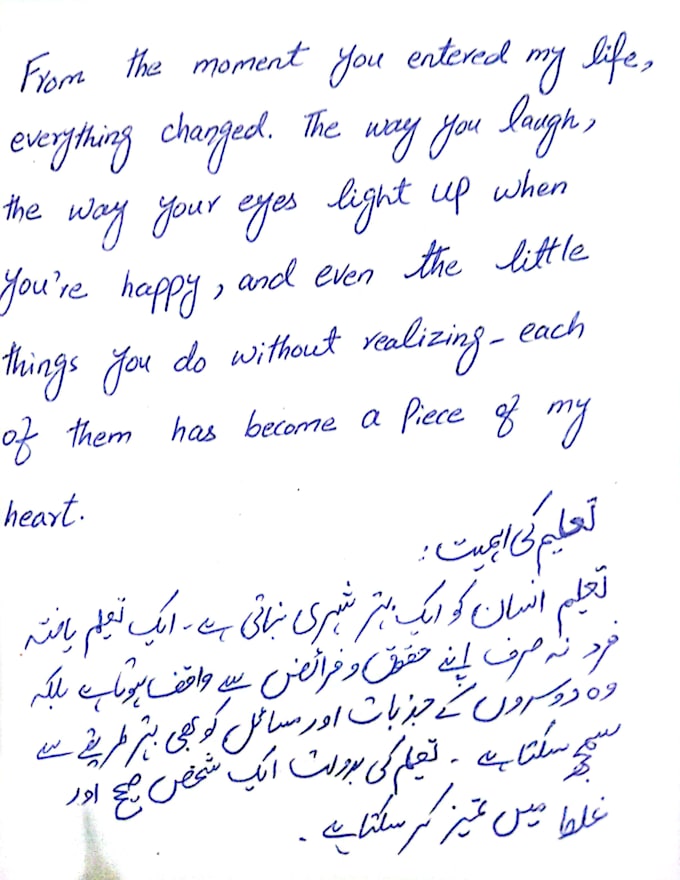 From the moment you entered my life,
everything changed. The way you laugh,
the way your eyes light up when
you're happy, and even the little
things you do without realizing - each
of them has become a piece of my
heart.
تعلیم کی اہمیت :
تعلیم انسان کو ایک بہتر شہری بناتی ہے۔ ایک تعلیم یافتہ
فرد نہ صرف اپنے حقوق و فرائض سے واقف ہوتا ہے بلکہ
وہ دوسروں کے جذبات اور مسائل کو بھی بہتر طریقے سے
سمجھ سکتا ہے ۔ تعلیم کی بدولت ایک شخص صحیح اور
غلط میں تمیز کر سکتا ہے ۔